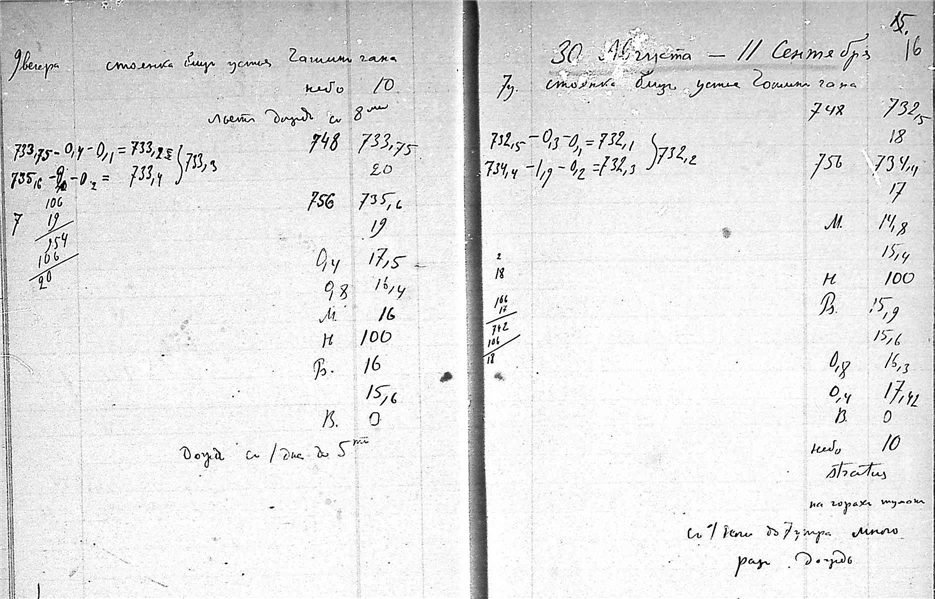 9 вечера стоянка близ устья Чашингана
небо 10
льетъ дождь съ 8 ми
748 733,75
733,75 - 0,4 - 0,1 = 733,25 } 733,3
20
735,6 - 2 - 0,2 = 733,4
756 735,6
106
7 19
19
954
106
20
0,4 17,5
0,8 16,4
М. 16
Н 100
В. 16
15,6
В. 0
Дождь съ 1 дня до 5 ти
15,
16
30 Августа — 11 Сентября
7у. стоянка близ устья Чашингана
748 732,5
18
732,5 - 0,3 - 0,1 = 732,1 } 732,2
734,4 - 1,9 - 0,2 = 732,3
756 734,4
17
М. 14,8
15,4
2
18
Н 100
106
17
В. 15,9
742
106
18
15,6
0,8 16,3
0,4 17,42
В. 0
небо 10
stratus
на горахъ туманъ
до 7 утра много
разъ дождь